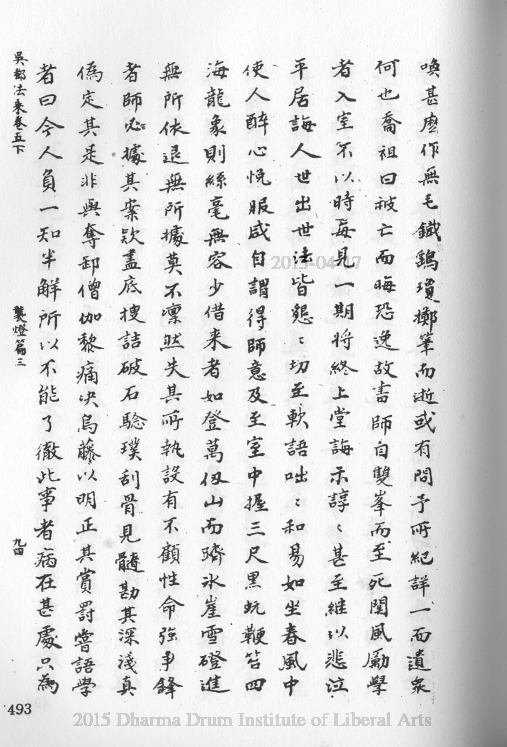 喚甚麼作無毛鐵鷂瓊擲筆而逝或有問予所紀詳一而遺衆
何也喬祖曰被亡而晦恐逸故書師自雙峯而至死關風勵學
者入室不以時每見一期將終上堂誨示諄〻甚至繼以悲泣
平居誨人世出世法皆懇〻切至軟語咄〻和易如坐春風中
使人醉心悅服咸自謂得師意及至室中握三尺黑蚖鞭笞四
海龍象則絲毫無容少借来者如登萬仭山而躋氷崖雪磴進
無所依退無所據莫不凛然失其所執設有不顧性命強爭鋒
者師必據其案款盡底搜詰破石驗璞刮骨見髓勘其深淺真
僞定其是非與奪卸僧伽黎痛决烏藤以明正其賞罰嘗語學
者曰今人負一知半解所以不能了徹此事者病在甚處只為
吳都法乘卷五下
襲燈篇三
九四
493
2015-04-17
2015 Dharma Drum Institute of Liberal Arts